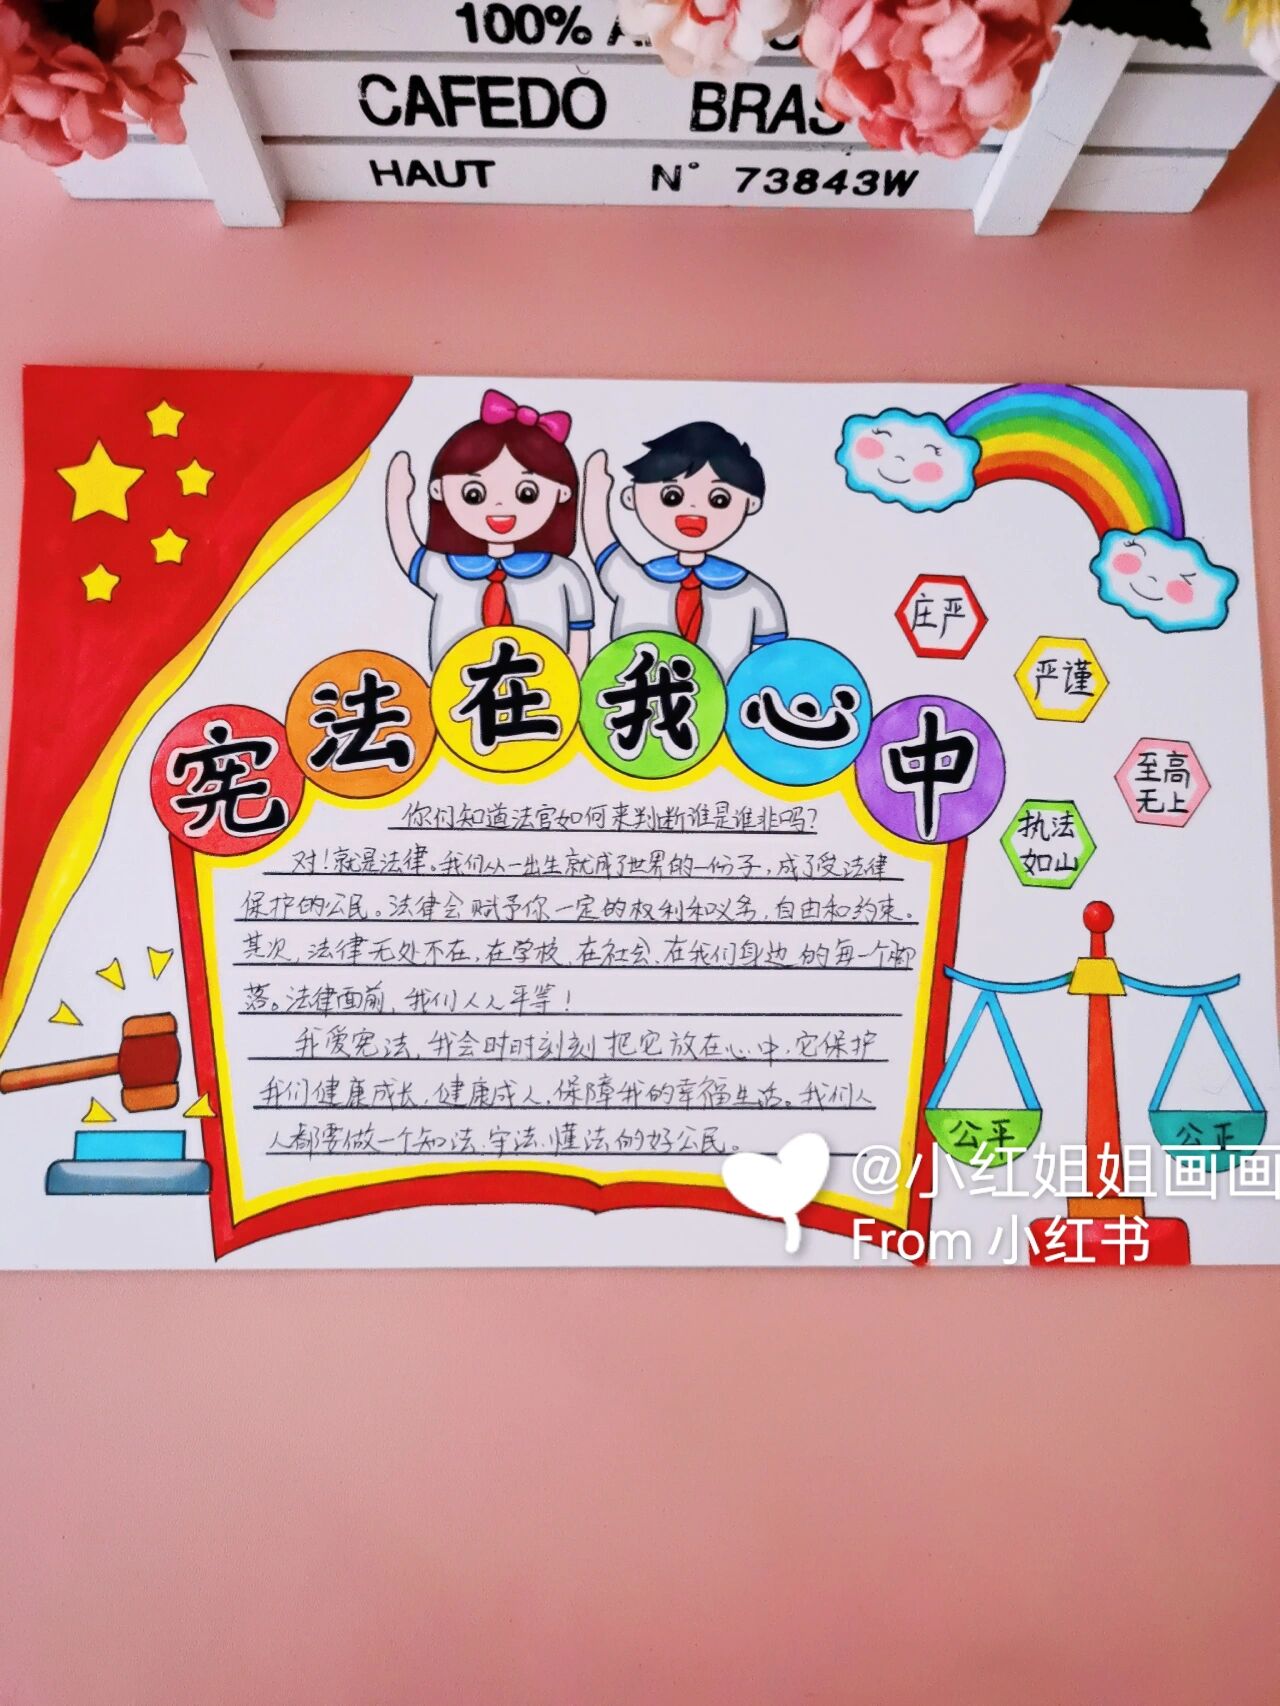 100%
CAFEDO BRAS
HAUT N° 73843W
宪法在我心中
庄严
严谨
至高
无上
执法
如山
你们知道法官如何来判断谁是谁非吗?
对!就是法律。我们从一出生就成了世界的一份子,成了受法律
保护的公民。法律会赋予你一定的权利和义务,自由和约束。
其次,法律无处不在,在学校,在社会,在我们身边的每一个脚
落。法律面前,我们人人平等!
我爱宪法,我会时时刻刻把它放在心中,它保护
我们健康成长,健康成人,保障我的幸福生活。我们人
人都要做一个知法、守法、懂法的好公民。
公平
公正
@小红姐姐画画
From 小红书